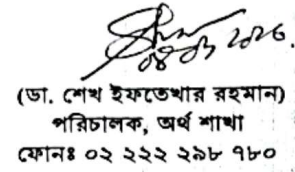 ০৪ ০১ ২০২৬
(ডা. শেখ ইফতেখার রহমান)
পরিচালক, অর্থ শাখা
ফোনঃ ০২ ২২২ ২৯৮ ৭৮০